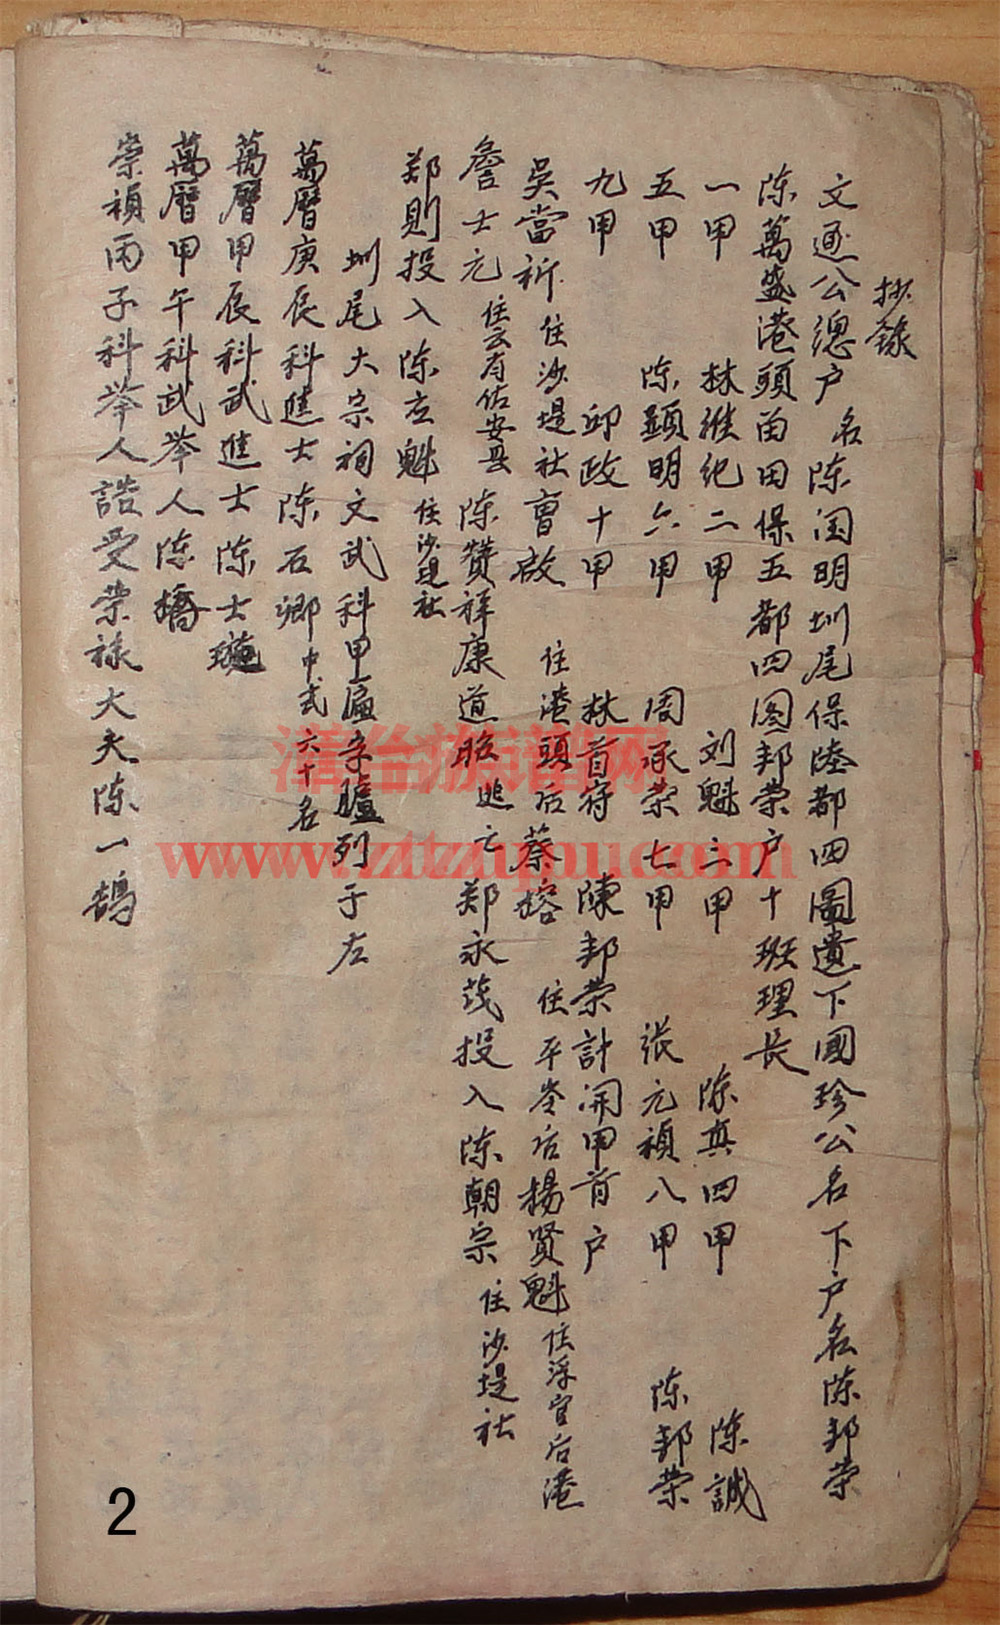 抄錄
文逦公總户名陈国明圳尾保陸都四圖遺下國珍公名下户名陈邦荣
陈萬盛港頭甾田保五都四图邦荣户十班理長
一甲 林维纪二甲 刘魁三甲 陈真四甲 陈誠
五甲 陈顕明六甲 周承荣七甲 张元禎八甲 陈邦荣
九甲 邱政十甲 林首府 陳邦荣計開甲首户
吳當祈住沙堤社曹啟 住港頭后蔡榕 住平峯后楊贤魁住浮宫后港
詹士元住云有佑安县陈赞祥康道賑逃亡郑永茂投入陈朝宗住沙堤社
郑則投入陈左魁住沙堤社
圳尾大宗祠文武科甲匾字臚列于左
萬曆庚辰科進士陈石卿中式六十名
萬曆甲辰科武進士陈士璇
萬曆甲午科武举人陈橋
崇禎丙子科举人誥受荣祿大夫陈一鹄
漳台族譜网
www.ztzupu.com
2